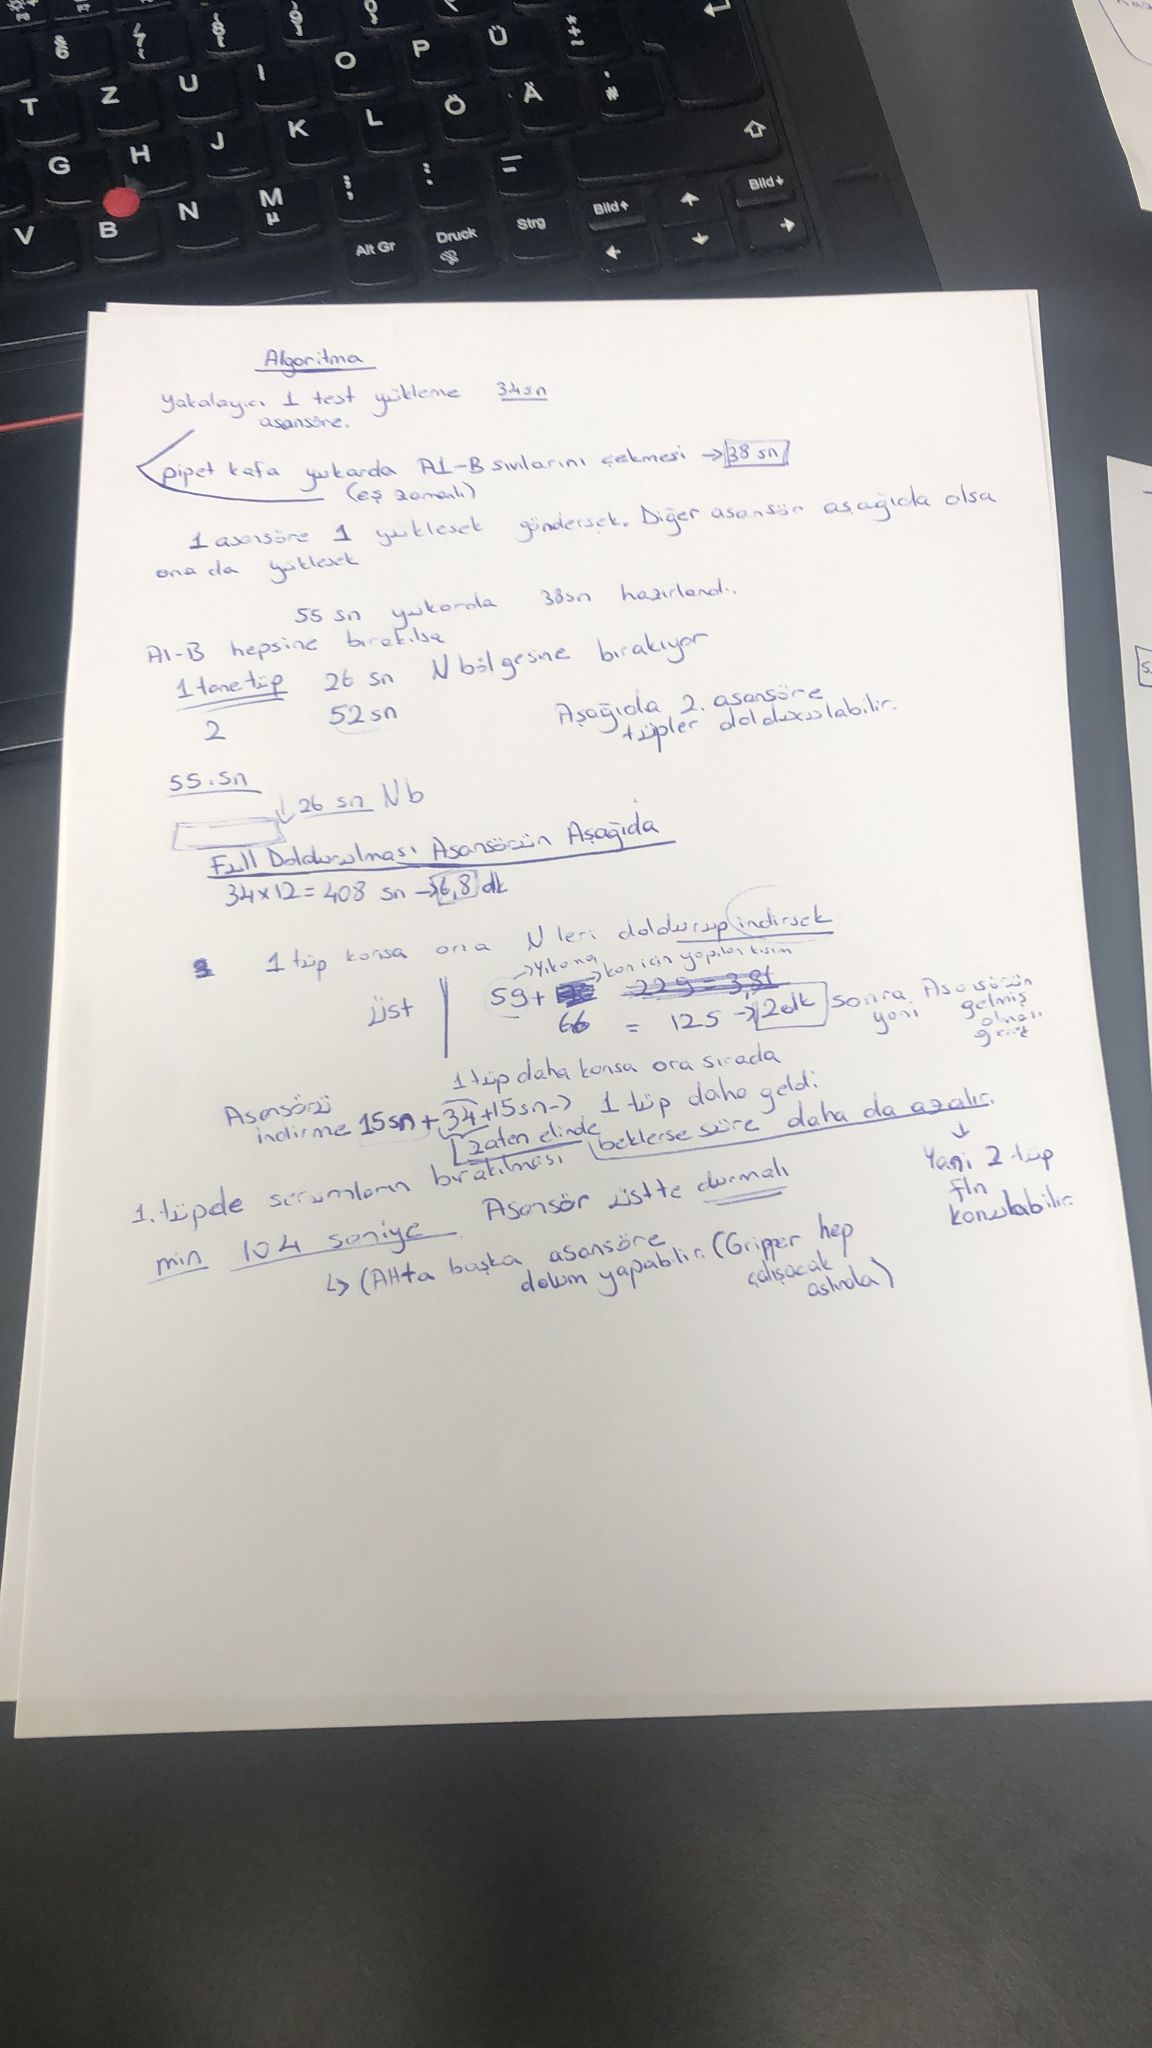 § 6
7 {
8 [
9 ]
0 }
T Z U I O P Ü * + ~
G H J K L Ö Ä ' #
V B N M µ ; , : . _ -
Alt Gr Druck Strg Bild↑ ↑ Bild↓
← ↓ →
Algoritma
Yakalayıcı 1 test yükleme 34sn
asansöre.
pipet kafa yukarda A1-B sıvılarını çekmesi → 38 sn
(eş zamanlı)
1 asansöre 1 yüklesek göndersek. Diğer asansör aşağıda olsa
ona da yüklesek
55 sn yukarda 38sn hazırlandı.
A1-B hepsine bırakılsa
1 tane tüp 26 sn N bölgesine bırakıyor
2 52 sn
Aşağıda 2. asansöre
tüpler doldurulabilir.
55.sn
↓ 26 sn Nb
Full Doldurulması Asansörün Aşağıda
34x12 = 408 sn → 6,8 dk
1 tüp konsa ona N leri doldurup indirsek
→ Yıkama → kan için yapılan kısım
üst 59 + 229 = 3,81
66 = 125 → 2 dk sonra Asansörün
yani gelmiş
olması
gerek
1 tüp daha konsa ora sırada
Asansörü
indirme 15sn + 34 + 15sn → 1 tüp daha geldi.
zaten elinde beklerse süre daha da azalır.
↓
Yani 2 tüp
fln
konulabilir.
1. tüpde serumların bırakılması
min 104 saniye Asansör üstte durmalı
↳ (Altta başka asansöre
dolum yapabilir. (Gripper hep
çalışacak
aslında)